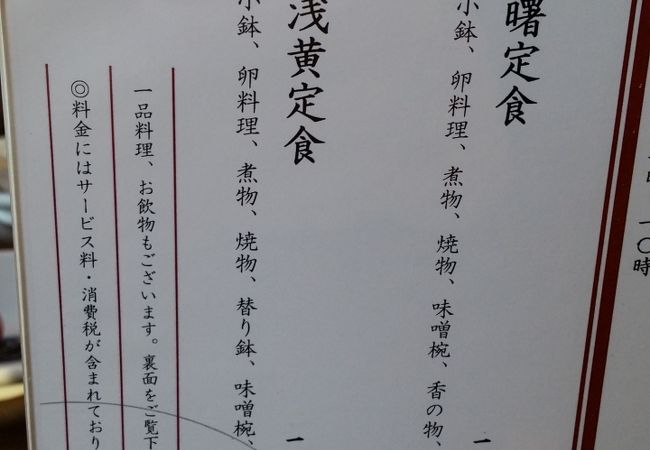 一〇時
曙定食
小鉢、卵料理、煮物、焼物、味噌椀、香の物、
一
浅黄定食
小鉢、卵料理、煮物、焼物、替り鉢、味噌椀、
一
一品料理、お飲物もございます。裏面をご覧下
◎料金にはサービス料・消費税が含まれており